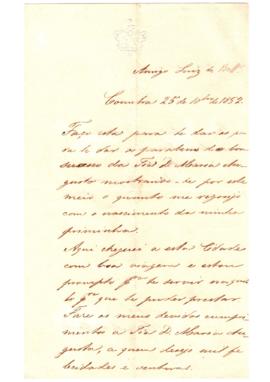 Amigo Luiz de
Coimbra 25 de 10bro de 1852.
Faço esta para te dar os pa
ra te dar os parabens do bom
successo da Snra D. Maria Au
gusta mostrando-te por este
meio o quanto me regozijo
com o nascimento da minha
priminha.
Aqui cheguei a esta Cidade
com boa viagem e estou
prompto pra te servir naquil
lo pra que te puder prestar.
Faze os meus devidos cumpri
mentos a Snra D. Maria Au
gusta, a quem desejo mil fe
licidades e venturas